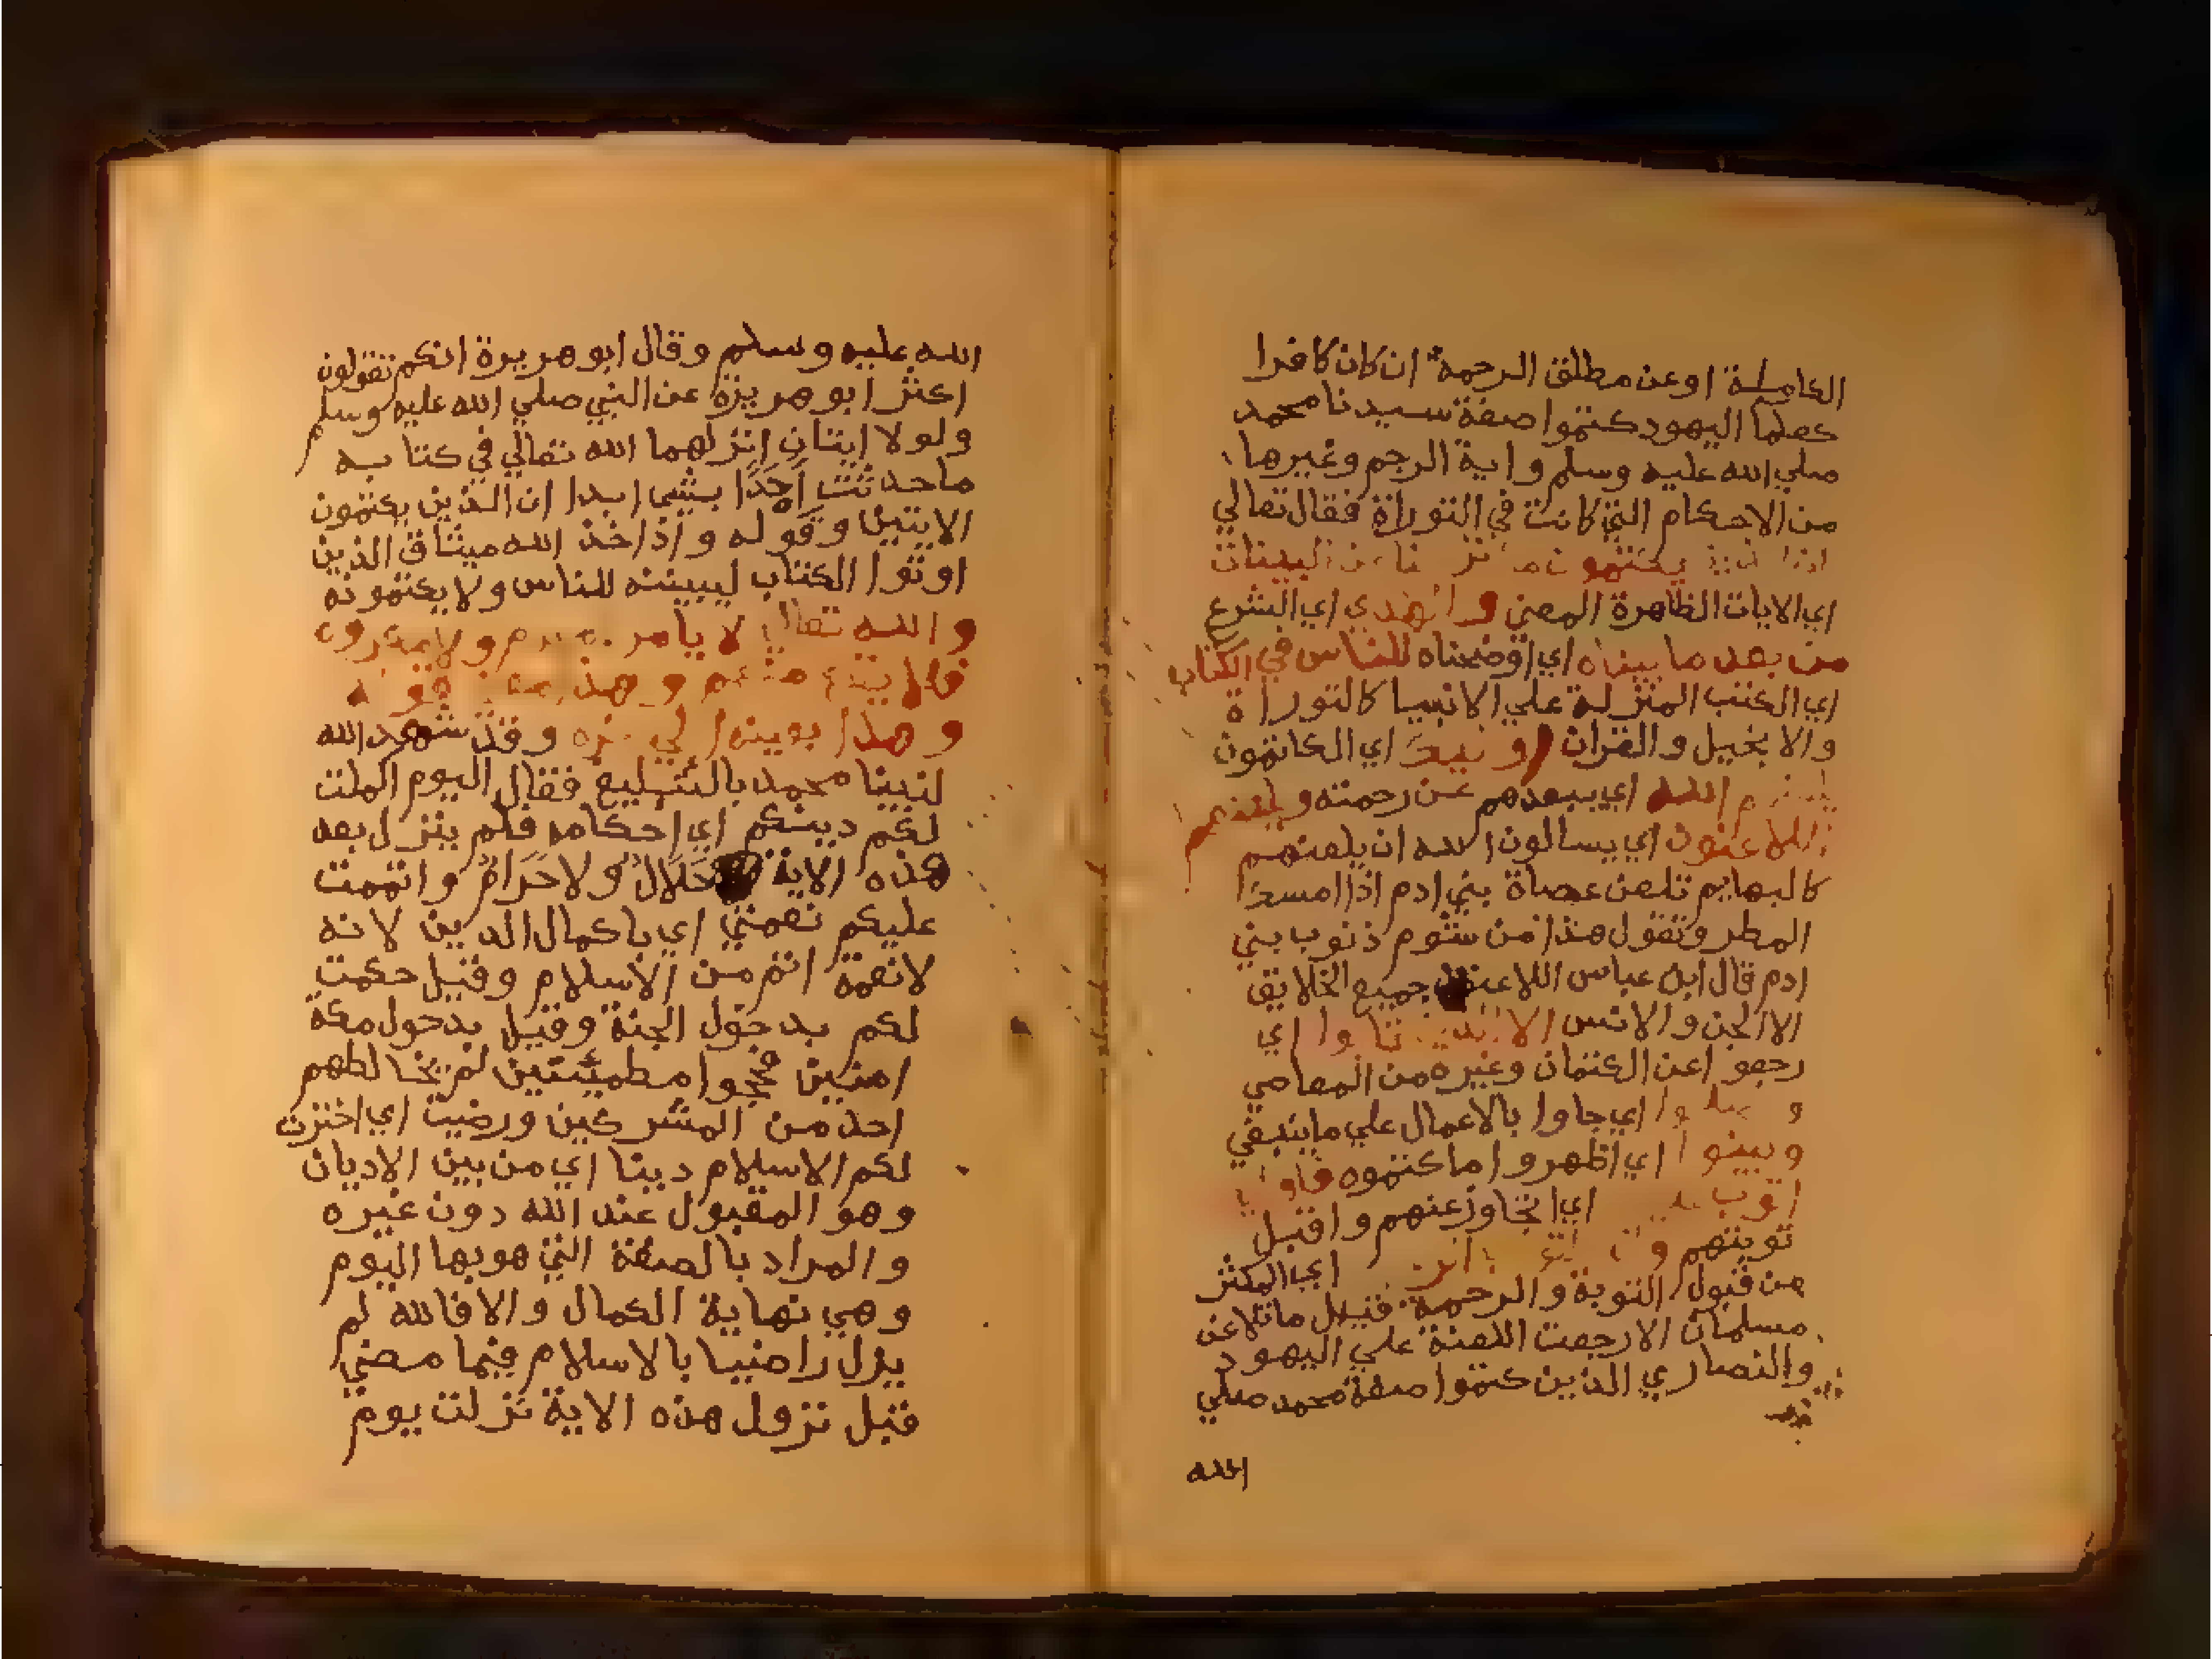 الكاملة اوعن مطلق الرحمة ان كان كافرا
كعلما اليهود كتموا صفة سيدنا محمد
صلي الله عليه وسلم واية الرجم وغيرها
من الاحكام التي كانت في التوراة فقال تعالي
يكتمون من البينات
اي الايات الظاهرة المعني والهدي اي الشرع
من بعد ما بيناه اي اوضحناه للناس في الكتاب
اي الكتب المنزلة علي الانبيا كالتوراة
والانجيل والقران اي الكاتمون
الله اي يبعدهم عن رحمته ويلعنهم
اللاعنون اي يسالون الله ان يلعنهم
كالبهايم تلعن عصاة بني ادم اذا امسك
المطر وتقول هذا من شوم ذنوب بني
ادم قال ابن عباس اللاعنون جميع الخلايق
الا الجن والانس الا تابوا اي
رجعوا عن الكتمان وغيره من المعاصي
اي جاوا بالاعمال علي ما ينبغي
وبينوا اي اظهروا ما كتموه
اتوب اي اتجاوز عنهم واقبل
توبتهم اي المكثر
من قبول التوبة والرحمة قيل ما تلاعن
مسلمان الا رجعت اللعنة علي اليهود
والنصاري الذين كتموا صفة محمد صلي
الله
الله عليه وسلم وقال ابو هريرة انكم تقولون
اكثر ابو هريرة عن النبي صلي الله عليه وسلم
ولولا ايتان انزلهما الله تعالي في كتابه
ما حدثت احدا بشي ابدا ان الذين يكتمون
الايتين وقوله واذ اخذ الله ميثاق الذين
اوتوا الكتاب ليبيننه للناس ولا يكتمونه
والله تعالي لا يامر
وهذا
وهذا وقد شهد الله
لنبينا محمد بالتبليغ فقال اليوم اكملت
لكم دينكم اي احكامه فلم ينزل بعد
هذه الاية حلال ولا حرام واتممت
عليكم نعمتي اي باكمال الدين لانه
لا نعمة اتم من الاسلام وقيل حكمت
لكم بدخول الجنة وقيل بدخول مكة
امنين فحجوا مطمئنين لم يخالطهم
احد من المشركين ورضيت اي اخترت
لكم الاسلام دينا اي من بين الاديان
وهو المقبول عند الله دون غيره
والمراد بالصفة التي هو بها اليوم
وهي نهاية الكمال والا فالله لم
يزل راضيا بالاسلام فيما مضي
قبل نزول هذه الاية نزلت يوم